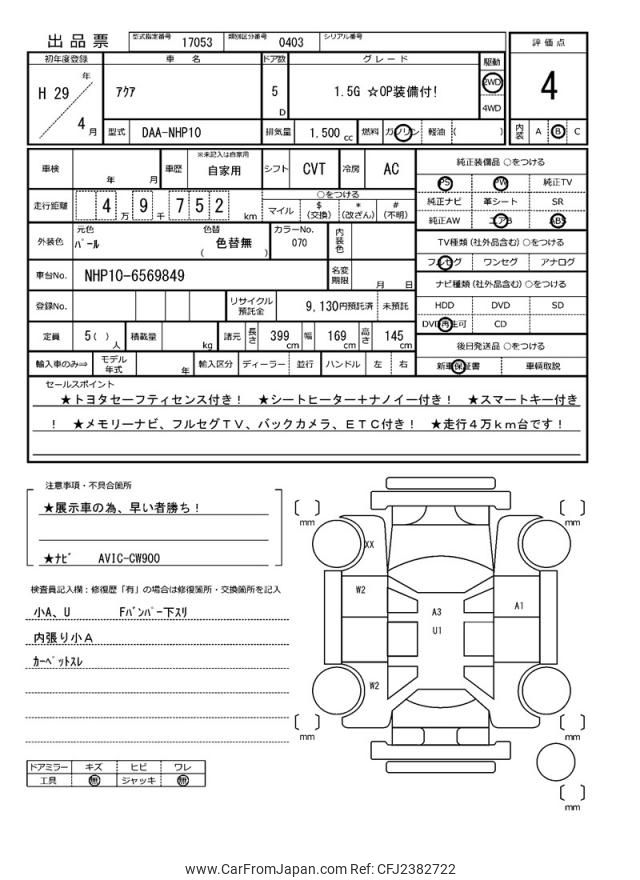 出品票 型式指定番号 17053 類別区分番号 0403 シリアル番号
評価点
4
内装 A B C
初年度登録 車名 ドア数 グレード 駆動
H 29 年 4 月
アクア
5 D
1.5G ☆OP装備付!
2WD
4WD
型式 DAA-NHP10 排気量 1.500 cc 燃料 ガソリン 軽油 ( )
車検 年 月 車歴 ※未記入は自家用 自家用 シフト CVT 冷房 AC
走行距離 4 万 9 千 7 5 2 km
○をつける
マイル $(交換) *(改ざん) #(不明)
外装色 元色 パール 色替 ( 色替無 ) カラーNo. 070 内装色
車台No. NHP10-6569849 名変期限 月 日
登録No. リサイクル預託金 9,130円預託済 未預託
定員 5( )人 積載量 kg 諸元 長さ 399 cm 幅 169 cm 高さ 145 cm
輸入車のみ⇒ モデル年式 年 輸入区分 ディーラー 並行 ハンドル 左 右
純正装備品 ○をつける
PS PW 純正TV
純正ナビ 革シート SR
純正AW エアB ABS
TV種類(社外品含む)○をつける
フルセグ ワンセグ アナログ
ナビ種類(社外品含む)○をつける
HDD DVD SD
DVD再生可 CD
後日発送品 ○をつける
新車保証書 車輌取説
セールスポイント
★トヨタセーフティセンス付き! ★シートヒーター+ナノイー付き! ★スマートキー付き
! ★メモリーナビ、フルセグTV、バックカメラ、ETC付き! ★走行4万km台です!
注意事項・不具合箇所
★展示車の為、早い者勝ち!
★ナビ AVIC-CW900
検査員記入欄:修復歴「有」の場合は修復箇所・交換箇所を記入
小A、U Fバンパー下スリ
内張り小A
カーペットスレ
ドアミラー キズ ヒビ ワレ
工具 無 ジャッキ 無
mm
mm
XX
W2
A3
A1
U1
W2
mm
mm
mm
www.CarFromJapan.com Ref: CFJ2382722